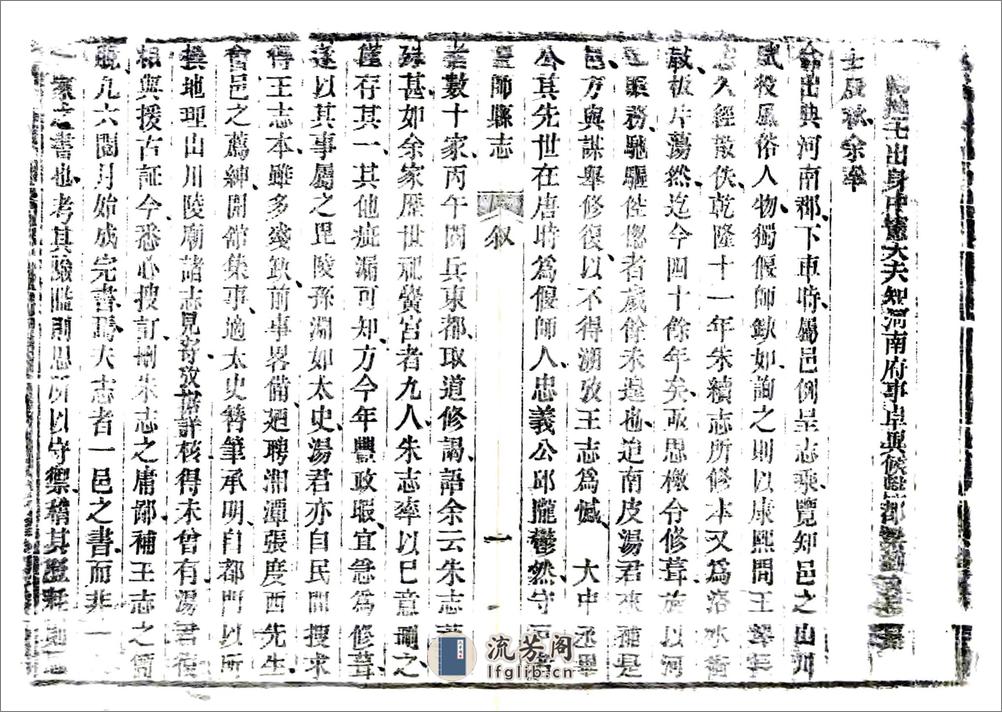 出身中憲大夫知河南府事卓異候
余奉
命出典河南郡下車時屬邑例呈志乘覽知邑之山川
賦役風俗人物獨偃師缺如詢之則以康熙間王
久經散佚乾隆十一年朱續志所修本又為洛水
敲板片蕩然迄今四十餘年矣亟思檄令修葺旋以河
務馳驅倥偬者歲餘未遑也迨南皮湯君來補是
邑方與謀舉修復以不得溯攷王志為憾 大中丞畢
公其先世在唐時為偃師人忠義公邱隴鬱然守
偃師縣志
叙
一
者數十家丙午閱兵東都取道修謁語余云朱志
殊甚如余家歷世祀黌宮者九人朱志率以已意刪之
僅存其一其他疵漏可知方今年豐政暇宜急為修葺
遂以其事屬之毘陵孫淵如太史湯君亦自民間搜求
得王志本雖多殘缺前事畧備廻聘湘潭張度西先生
會邑之薦紳開舘集事適太史簪筆承明自都門以所
撰地理山川陵廟諸志見寄攷據詳核得未曾有湯君復
相與援古証今悉心搜訂刪朱志之庸鄙補王志之簡
九六閱月始成完書焉夫志者一邑之書而非一
家之書也考其險隘則思所以守禦稽其
流芳阁
lfglib.cn